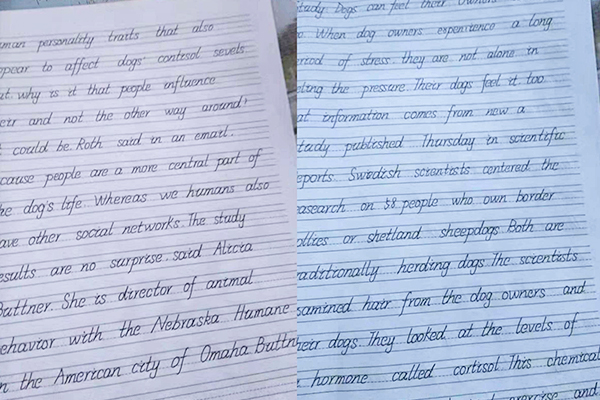 uman personality traits that also
ppear to affect dogs' contisol sevels
ut. why is it that people influence
eir and not the other way around?
t could be. Roth said in an email.
cause people are a more central part of
he dog's life. Whereas we humans also
ave other social networks. The study
esults are no surprise. said Alicia
Buttner. She is director of animal
ehavior with the Nebraska Humane
n the American city of Omaha Buttn
tudy Dogs can feel their owners
o. When dog owners experience a long
eriod of stress. they are not alone in
eling the pressure. Their dogs feel it too.
at information comes from new a
tudy published Thursday in scientific
eports. Swedish scientists centered the
esearch on 58 people who own border
ollies or shetland sheepdogs. Both are
raditionally herding dogs. The scientists
xamined hair from the dog owners and
heir dogs. They looked at the levels of
hormone called cortisol. This chemical
exercise and